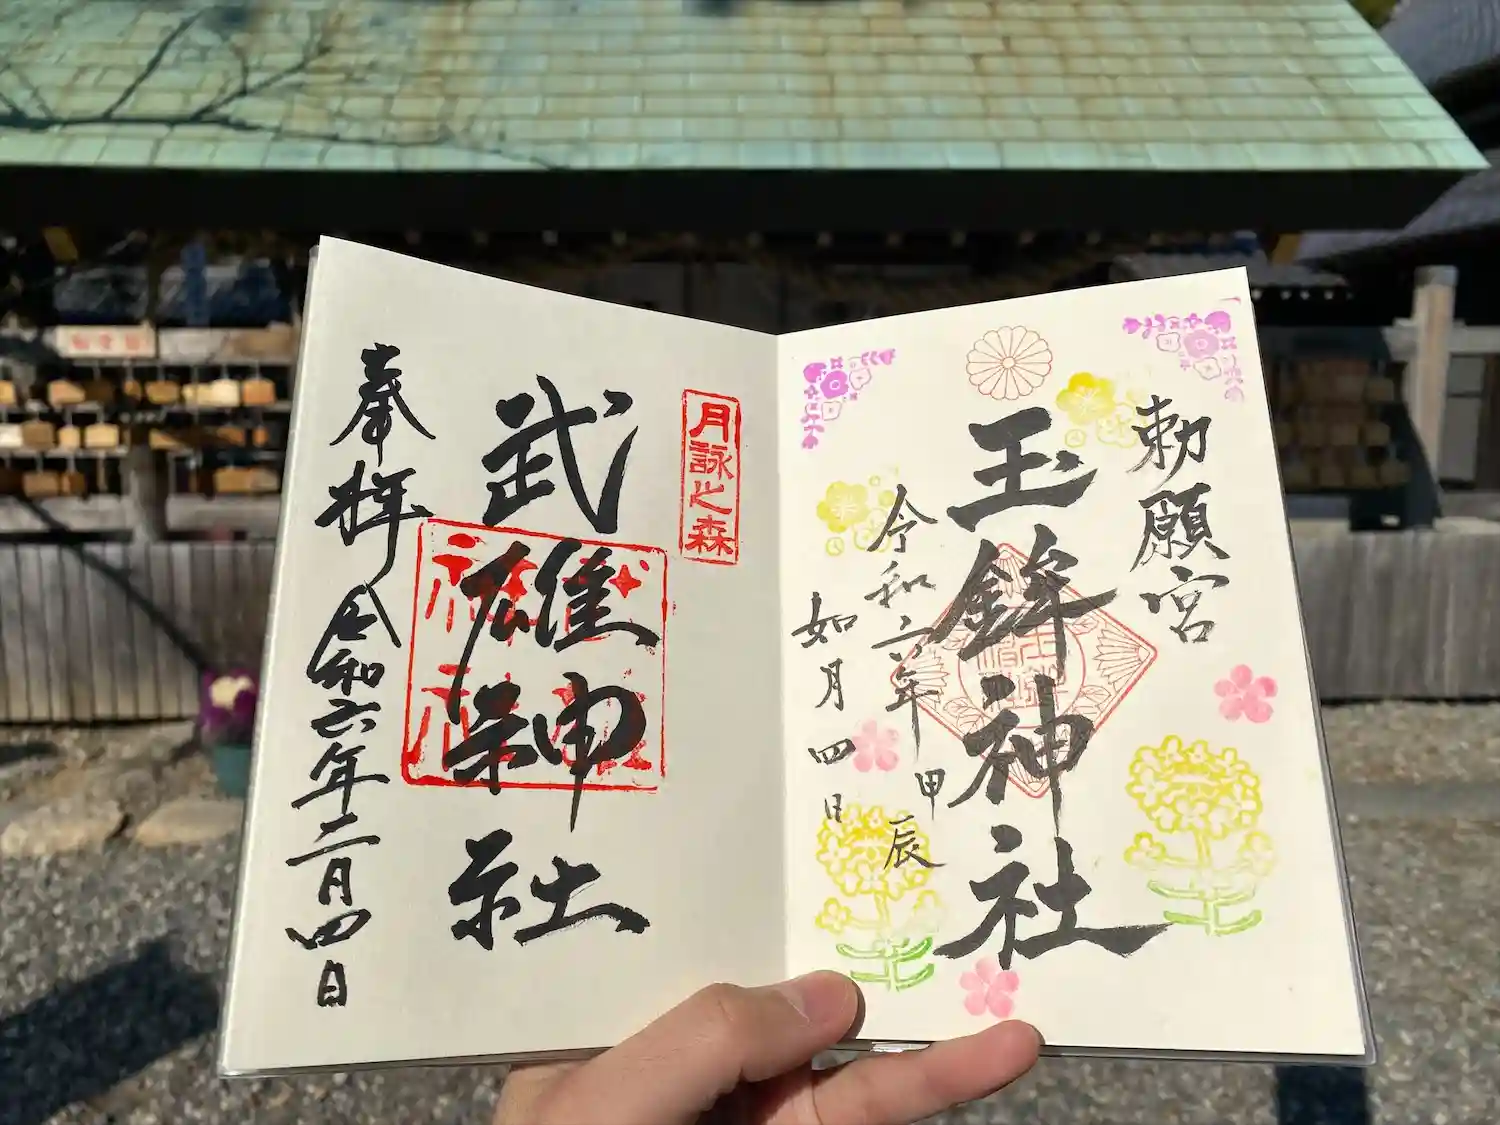 勅願宮
玉鉾神社
令和六年甲辰
如月四日
月詠之森
武雄神社
奉拝 令和六年二月四日